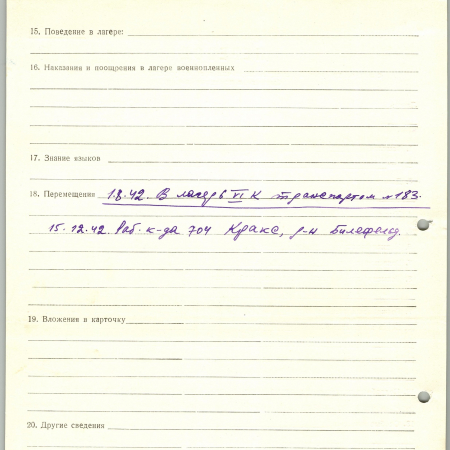 15. Поведение в лагере:
16. Наказания и поощрения в лагере военнопленных
17. Знание языков
18. Перемещения 1.8.42. В лагерь VI К транспортом №183.
15.12.42. Раб. к-да 704 Кракс, р-н Билефельд.
19. Вложения в карточку
20. Другие сведения